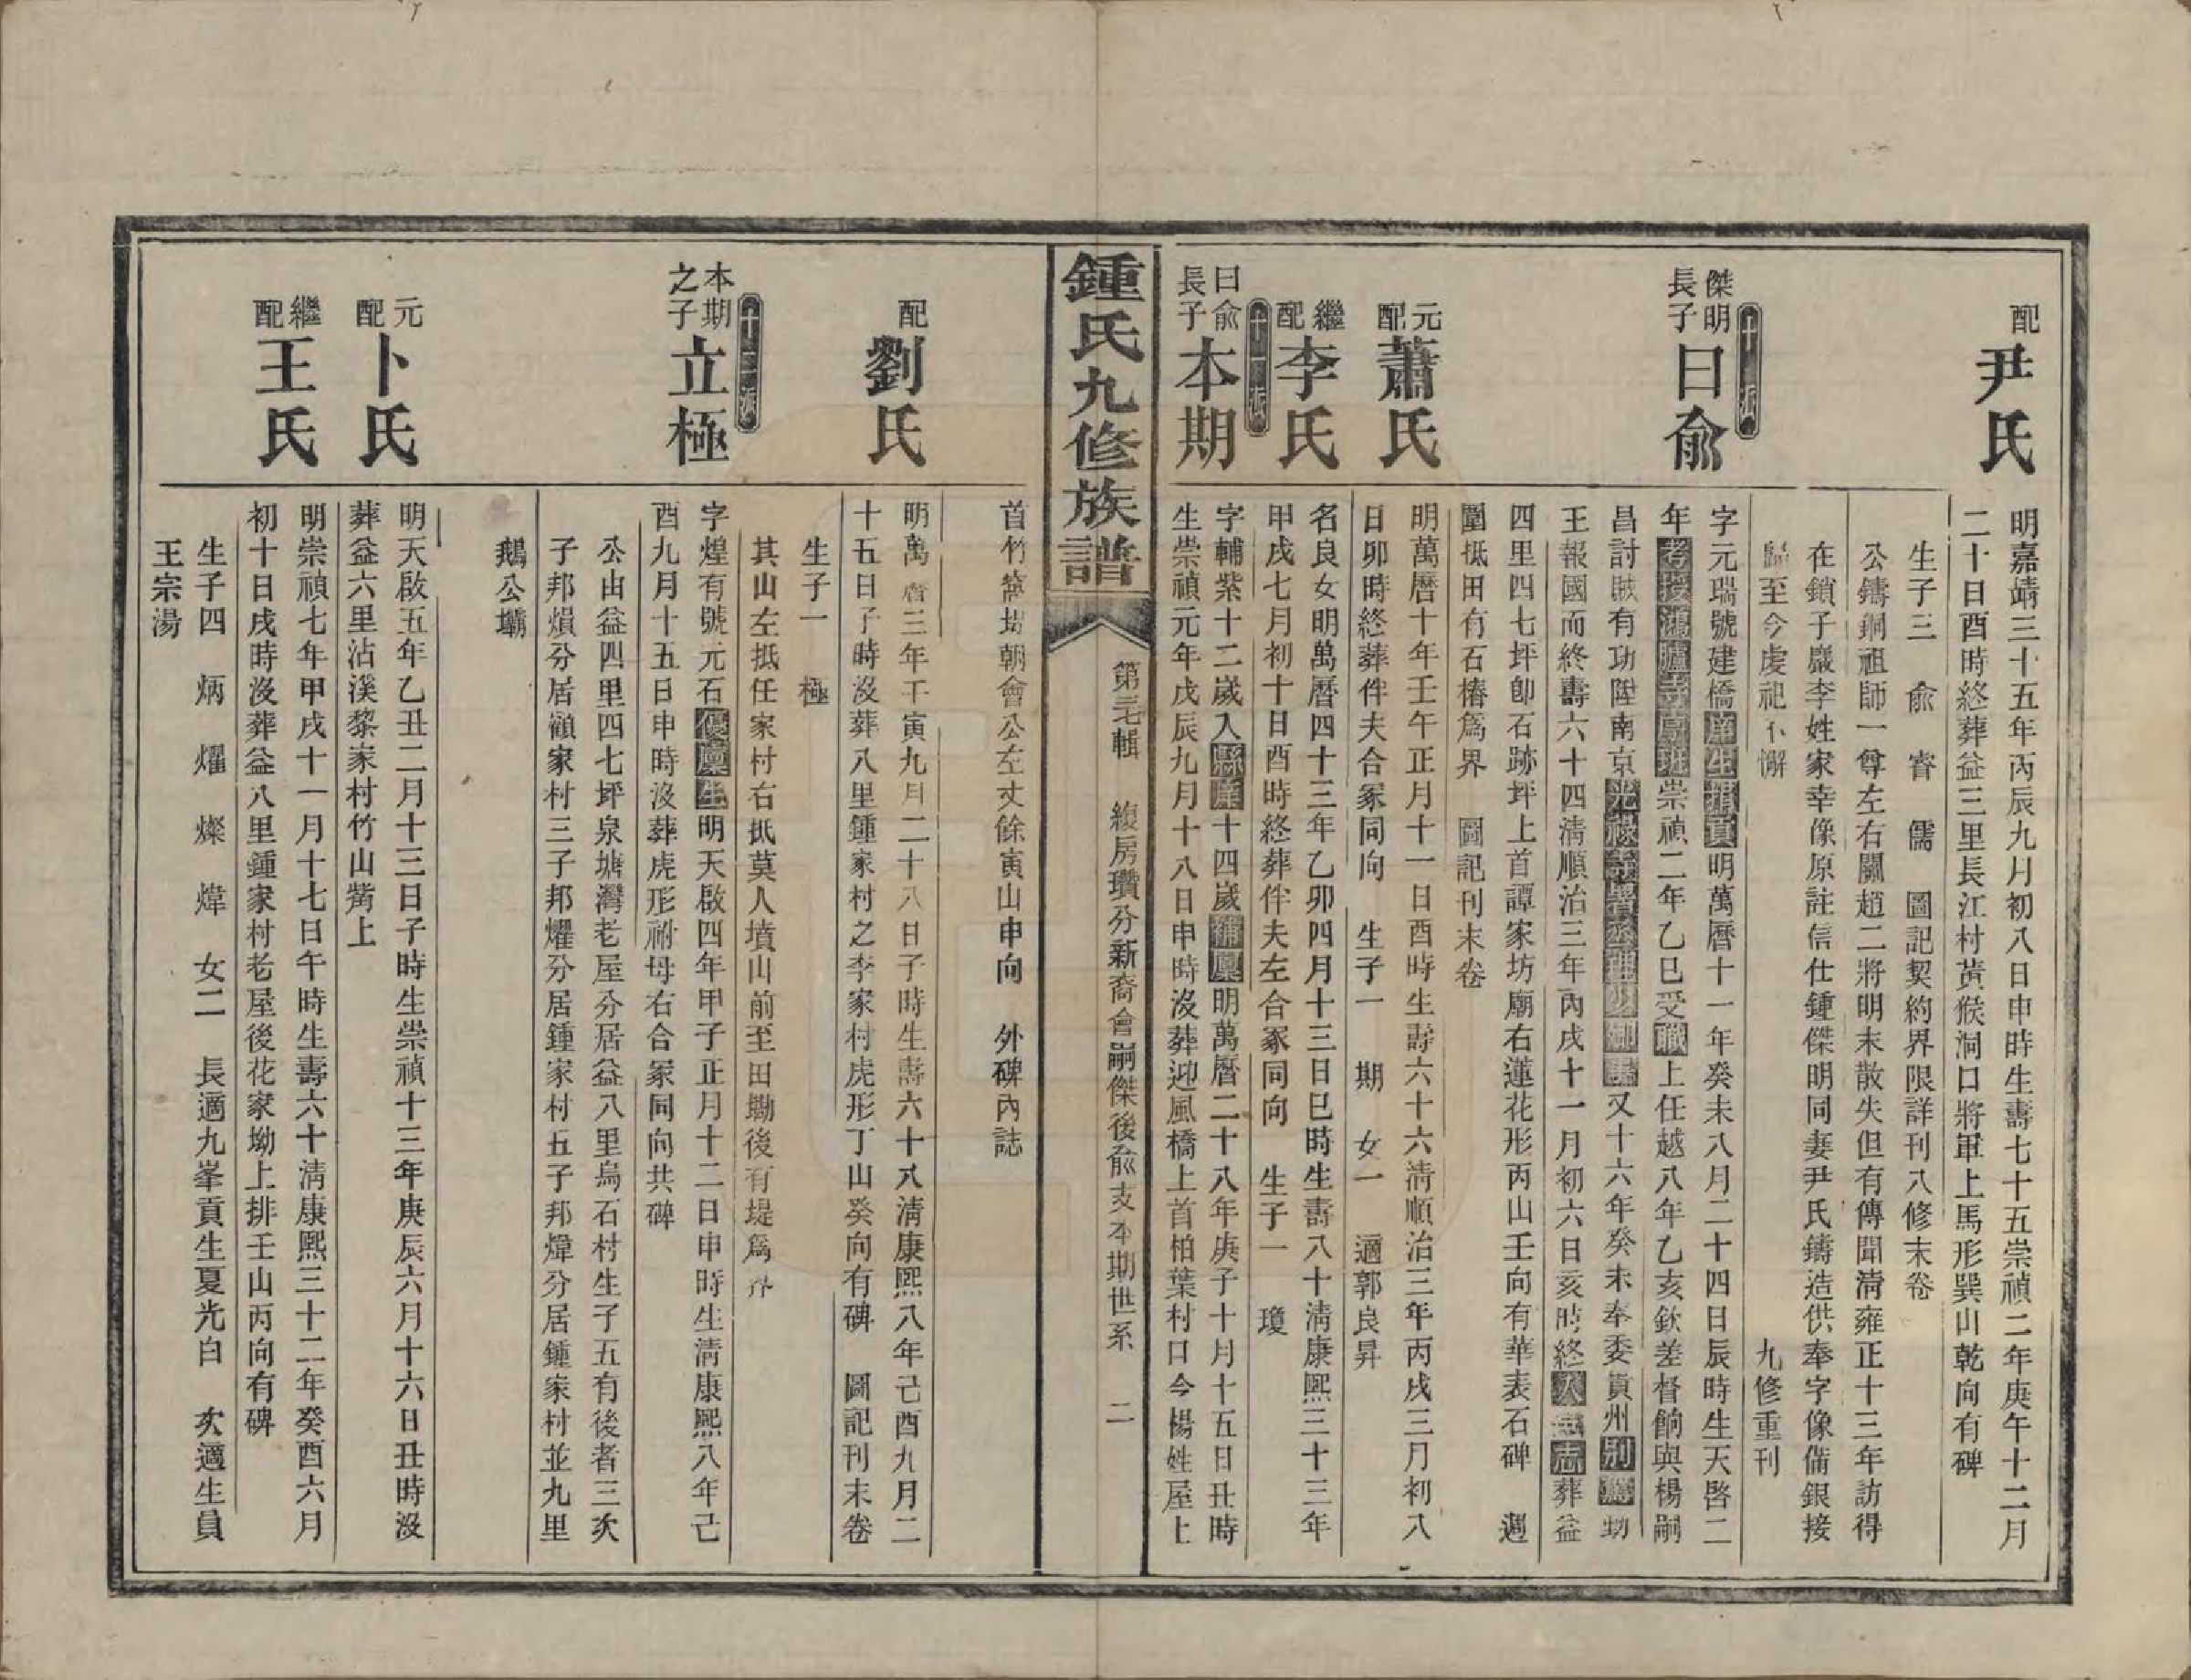 配
尹氏
明嘉靖三十五年丙辰九月初八日申時生壽七十五崇禎二年庚午十二月
二十日酉時終葬益三里長江村黃猴洞口將軍上馬形巽山乾向有碑
生子三 俞 睿 儒 圖記契約界限詳刊八修末卷
公鑄銅祖師一尊左右關趙二將明末散失但有傳聞清雍正十三年訪得
在鎖子巖李姓家幸像原註信仕鍾傑明同妻尹氏鑄造供奉字像備銀接
歸至今虔祀不懈 九修重刊
十一派
傑明
長子
曰俞
字元瑞號建橋庠生明萬曆十一年癸未八月二十四日辰時生天啓二
年考授鴻臚寺序班崇禎二年乙巳受職上任越八年乙亥欽差督餉與楊嗣
昌討賊有功陞南京光祿寺署丞理少卿事又十六年癸未奉委貴州別駕
王報國而終壽六十四清順治三年丙戌十一月初六日亥時終志葬益
四里四七坪卽石跡坪上首譚家坊廟右蓮花形丙山壬向有華表石碑 週
圍抵田有石樁爲界 圖記刊末卷
元
配
蕭氏
明萬曆十年壬午正月十一日酉時生壽六十六清順治三年丙戌三月初八
日卯時終葬伴夫合冢同向 生子一 期 女一 適郭良昇
繼
配
李氏
名良女明萬曆四十三年乙卯四月十三日巳時生壽八十清康熙三十三年
甲戌七月初十日酉時終葬伴夫左合冢同向 生子一 瓊
曰俞
長子
本期
字輔紫十二歲入縣庠十四歲補廩明萬曆二十八年庚子十月十五日丑時
生崇禎元年戊辰九月十八日申時沒葬迎風橋上首柏葉村口今楊姓屋上
鍾氏九修族譜
第三七輯 緩房瓚分新裔會嗣傑後俞支本期世系 二
首竹窩坳朝會公左丈餘寅山申向 外碑內誌
配
劉氏
明萬曆三年壬寅九月二十八日子時生壽六十八清康熙八年己酉九月二
十五日子時沒葬八里鍾家村之李家村虎形丁山癸向有碑 圖記刊末卷
生子一 極
其山左抵任家村右抵莫人墳山前至田勘後有堤爲界
本期
之子
立極
字煌有號元石優廩生明天啟四年甲子正月十二日申時生清康熙八年己
酉九月十五日申時沒葬虎形祔母右合冢同向共碑
公由益四里四七坪泉塘灣老屋分居益八里烏石村生子五有後者三次
子邦熉分居顧家村三子邦燿分居鍾家村五子邦煒分居鍾家村並九里
鵝公壩
元
配
卜氏
明天啟五年乙丑二月十三日子時生崇禎十三年庚辰六月十六日丑時沒
葬益六里沾溪黎家村竹山觜上
繼
配
王氏
明崇禎七年甲戌十一月十七日午時生壽六十清康熙三十二年癸酉六月
初十日戌時沒葬益八里鍾家村老屋後花家坳上排壬山丙向有碑
生子四 炳 燿 燦 煒 女二 長適九峯貢生夏光白 次適生員
王宗湯